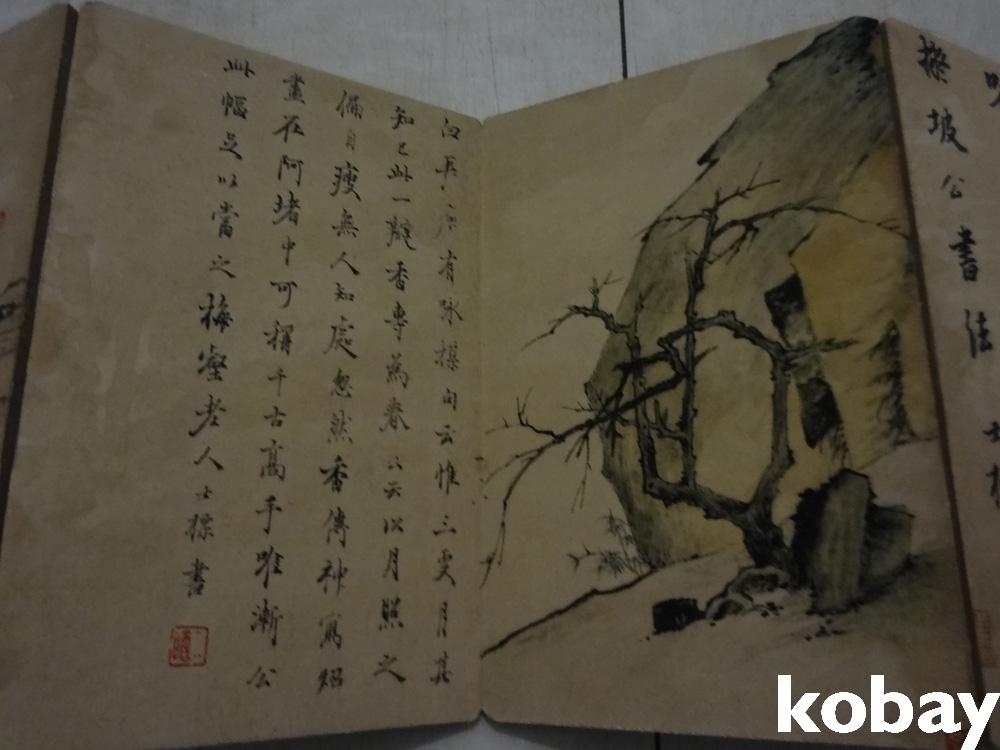 擬坡公書法
有詠楳句云惟三更月其
知己此一瓣香專為春〻云以月照之
偏自瘦無人知處忽然香傳神寫照
盡在阿堵中可稱千古高手唯漸公
此幅足以當之梅壑老人士標書
kobay